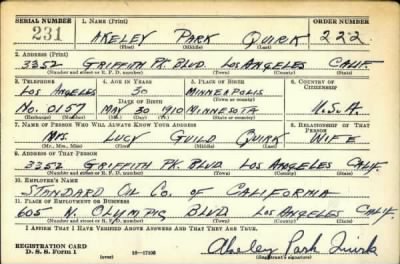 SERIAL NUMBER 1. NAME (Print) ORDER NUMBER
231 AKELEY PARK QUIRK 222
(First) (Middle) (Last)
2. ADDRESS (Print)
3352 GRIFFITH PK. BLVD. LOS ANGELES CALIF.
(Number and street or R. F. D. number) (Town) (County) (State)
3. TELEPHONE 4. AGE IN YEARS 5. PLACE OF BIRTH 6. COUNTRY OF CITIZENSHIP
LOS ANGELES 30 MINNEAPOLIS
DATE OF BIRTH (Town or county)
NO. 0157 MAY 30 1910 MINNESOTA U.S.A.
(Exchange) (Number) (Mo.) (Day) (Yr.) (State or country)
7. NAME OF PERSON WHO WILL ALWAYS KNOW YOUR ADDRESS 8. RELATIONSHIP OF THAT PERSON
MRS. LUCY GUILD QUIRK WIFE
(Mr., Mrs., Miss) (First) (Middle) (Last)
9. ADDRESS OF THAT PERSON
3352 GRIFFITH PK. BLVD. LOS ANGELES CALIF.
(Number and street or R. F. D. number) (Town) (County) (State)
10. EMPLOYER'S NAME
STANDARD OIL CO. OF CALIFORNIA
11. PLACE OF EMPLOYMENT OR BUSINESS
605 W. OLYMPIC BLVD LOS ANGELES CALIF.
(Number and street or R. F. D. number) (Town) (County) (State)
I AFFIRM THAT I HAVE VERIFIED ABOVE ANSWERS AND THAT THEY ARE TRUE.
REGISTRATION CARD
D. S. S. Form 1 (over) 16—17105 Akeley Park Quirk
(Registrant's signature)